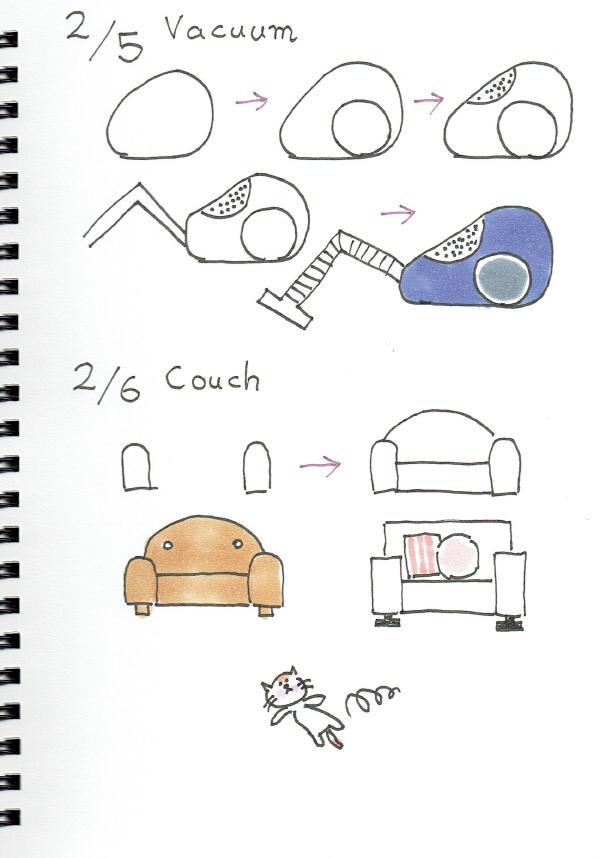 2/5 Vacuum
2/6 Couch